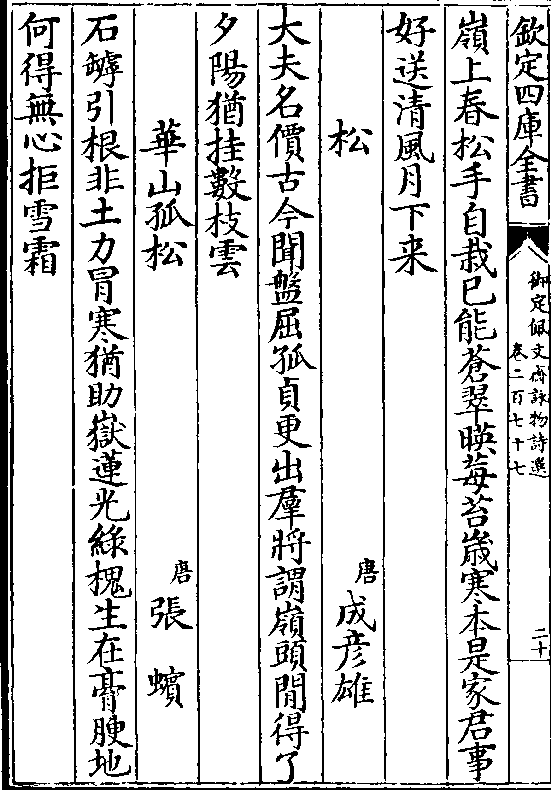 欽定四庫全書
御定佩文齋詠物詩選
卷二百七十七
二十
嶺上春松手自栽已能蒼翠暎莓苔歳寒本是家君事
好送清風月下来
松
唐
成彦雄
大夫名價古今聞盤屈孤貞更出羣將謂嶺頭閒得了
夕陽猶挂數枝雲
華山孤松
唐
張蠙
石罅引根非土力冐寒猶助嶽蓮光綠槐生在膏腴地
何得無心拒雪霜